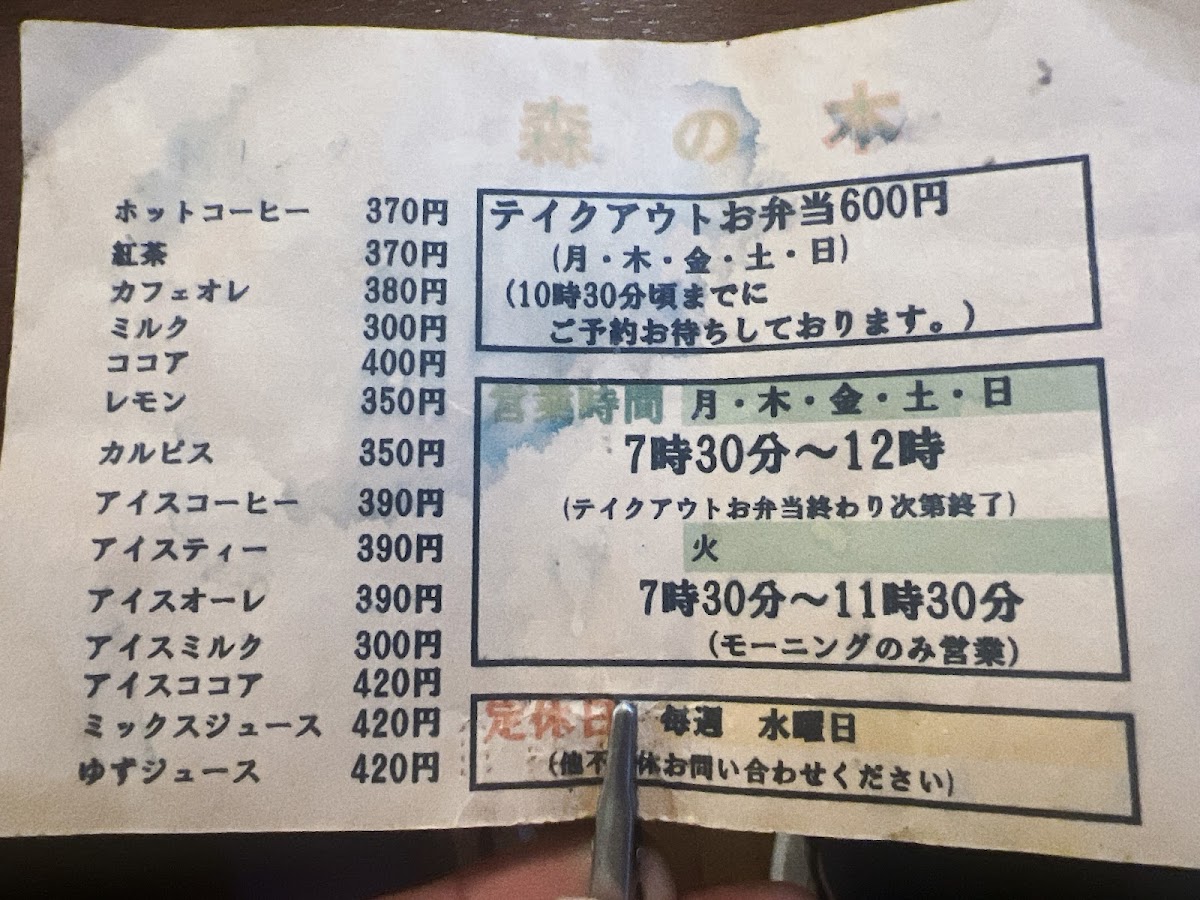 森の木
ホットコーヒー 370円
紅茶 370円
カフェオレ 380円
ミルク 300円
ココア 400円
レモン 350円
カルピス 350円
アイスコーヒー 390円
アイスティー 390円
アイスオーレ 390円
アイスミルク 300円
アイスココア 420円
ミックスジュース 420円
ゆずジュース 420円
テイクアウトお弁当600円
(月・木・金・土・日)
(10時30分頃までに
ご予約お待ちしております。)
営業時間 月・木・金・土・日
7時30分～12時
(テイクアウトお弁当終わり次第終了)
火
7時30分～11時30分
(モーニングのみ営業)
定休日 毎週 水曜日
(他不 休お問い合わせください)